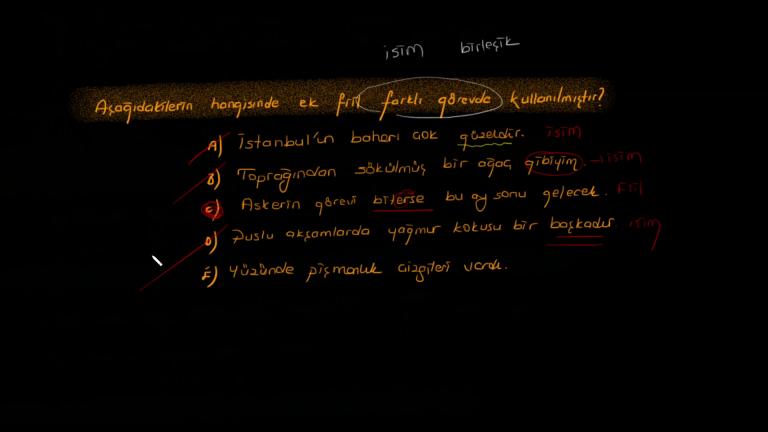 isim birleşik
Aşağıdakilerin hangisinde ek fiil farklı görevde kullanılmıştır?
A) İstanbul'un baharı çok güzeldir. isim
B) Toprağından sökülmüş bir ağaç gibiyim. → isim
C) Askerin görevi biterse bu ay sonu gelecek. Fiil
D) Puslu akşamlarda yağmur kokusu bir başkadır isim
E) Yüzünde pişmanlık çizgileri vardı.